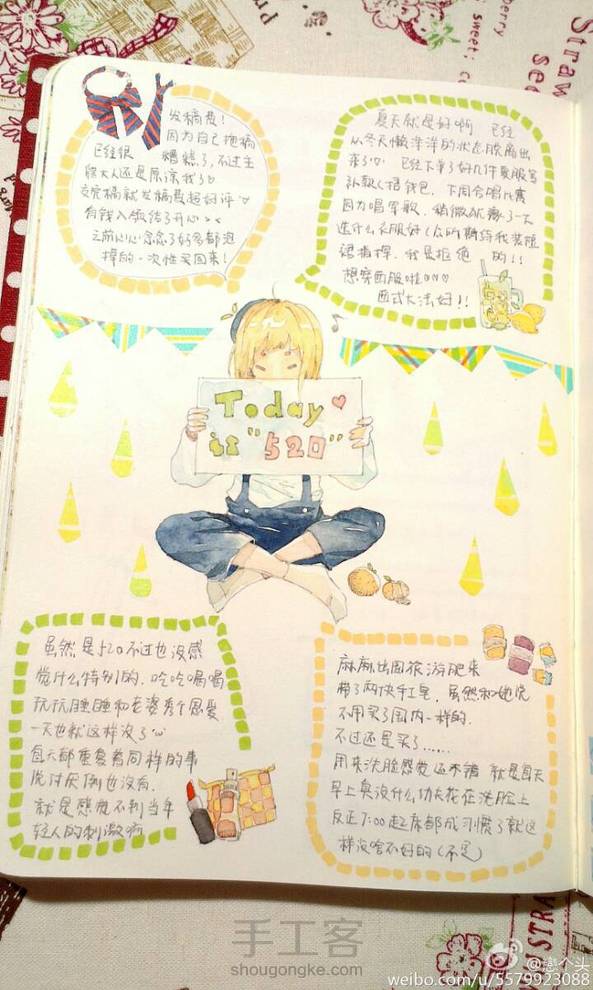 发稿费！
因为自己拖稿
已经很糟糕了，不过主
编大人还是原谅我了
交完稿就发稿费超好评
有钱入账传了开心
之前心心念念了好多都没
样的一次性买回来！
夏天就是好啊 已经
从冬天懒洋洋的状态脱离出
来了 已经下单了好几件夏服写
补款（捂钱包，下周合唱比赛
因为唱军歌，稍微犹豫了一下
选什么衣服好
裙指挥，我是拒绝的！！
想穿西服啦
西式大法好！！
Today
is "520"
虽然是520不过也没感
觉什么特别的，吃吃喝喝
玩玩睡睡和老婆秀个恩爱
一天也就这样没了
每天都重复着同样的事
说讨厌倒也没有，
就是感觉不到当年
轻人的刺激啊
麻麻出国旅游肥来
带了两块手工皂，虽然和她说
不用买了国内一样的，
不过还是买了......
用来洗脸感觉还不错 就是每天
早上臭没什么功夫花在洗脸上
反正7:00起床都成习惯了就这
样没啥不好的（不是）
手工客
shougongke.com
@戀个头
weibo.com/u/5579923088
Strawberry
sweet;